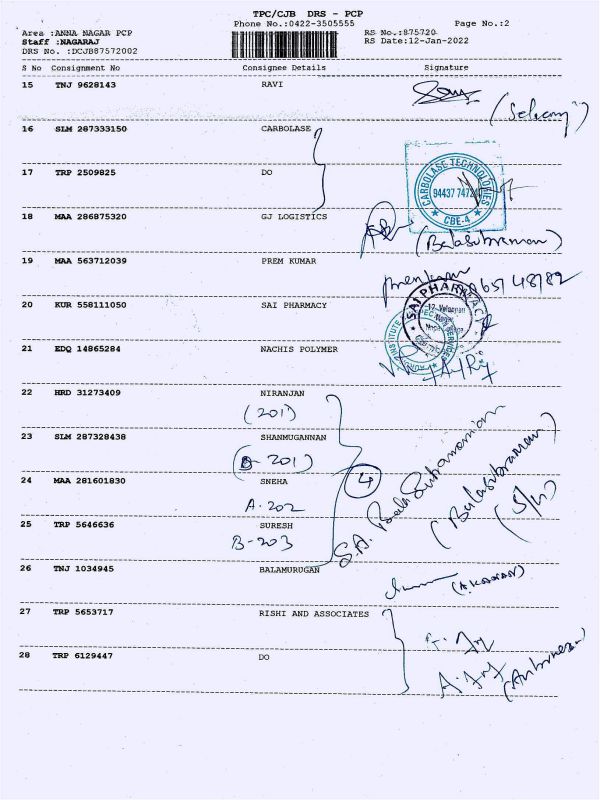 TPC/CJB DRS - PCP
Phone No.:0422-3505555
Page No.:2
Area :ANNA NAGAR PCP
RS No.:875720
Staff :NAGARAJ
RS Date:12-Jan-2022
DRS No. :DCJB87572002
S No Consignment No Consignee Details Signature
15 TNJ 9628143 RAVI
16 SLM 287333150 CARBOLASE
17 TRP 2509825 DO
CARBOLASE TECHNOLOGIES
CBE-4
18 MAA 286875320 GJ LOGISTICS
(Balasubraman)
19 MAA 563712039 PREM KUMAR
20 KUR 558111050 SAI PHARMACY
SAI PHARMACY
21 EDQ 14865284 NACHIS POLYMER
22 HRD 31273409 NIRANJAN
(201)
23 SLM 287328438 SHANMUGANNAN
(B-201)
24 MAA 281601830 SNEHA
4
A-202
25 TRP 5646636 SURESH
B-203
S.A.
(Balasubraman)
26 TNJ 1034945 BALAMURUGAN
27 TRP 5653717 RISHI AND ASSOCIATES
28 TRP 6129447 DO